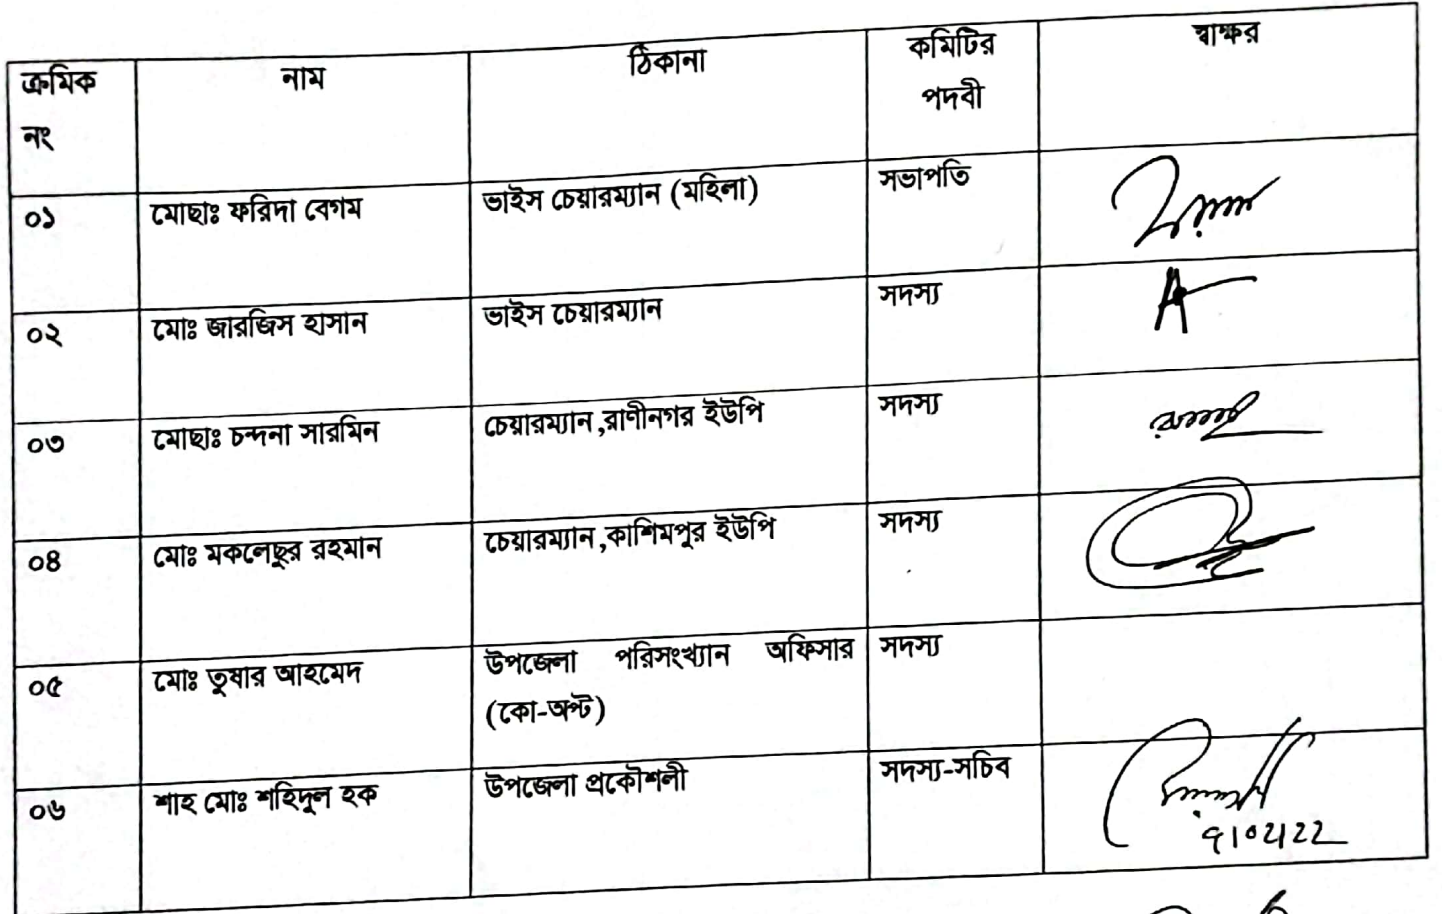 ক্রমিক নং	নাম	ঠিকানা	কমিটির পদবী	স্বাক্ষর
০১	মোছাঃ ফরিদা বেগম	ভাইস চেয়ারম্যান (মহিলা)	সভাপতি
০২	মোঃ জারজিস হাসান	ভাইস চেয়ারম্যান	সদস্য
০৩	মোছাঃ চন্দনা সারমিন	চেয়ারম্যান,রাণীনগর ইউপি	সদস্য
০৪	মোঃ মকলেছুর রহমান	চেয়ারম্যান,কাশিমপুর ইউপি	সদস্য
০৫	মোঃ তুষার আহমেদ	উপজেলা পরিসংখ্যান অফিসার (কো-অপ্ট)	সদস্য
০৬	শাহ মোঃ শহিদুল হক	উপজেলা প্রকৌশলী	সদস্য-সচিব